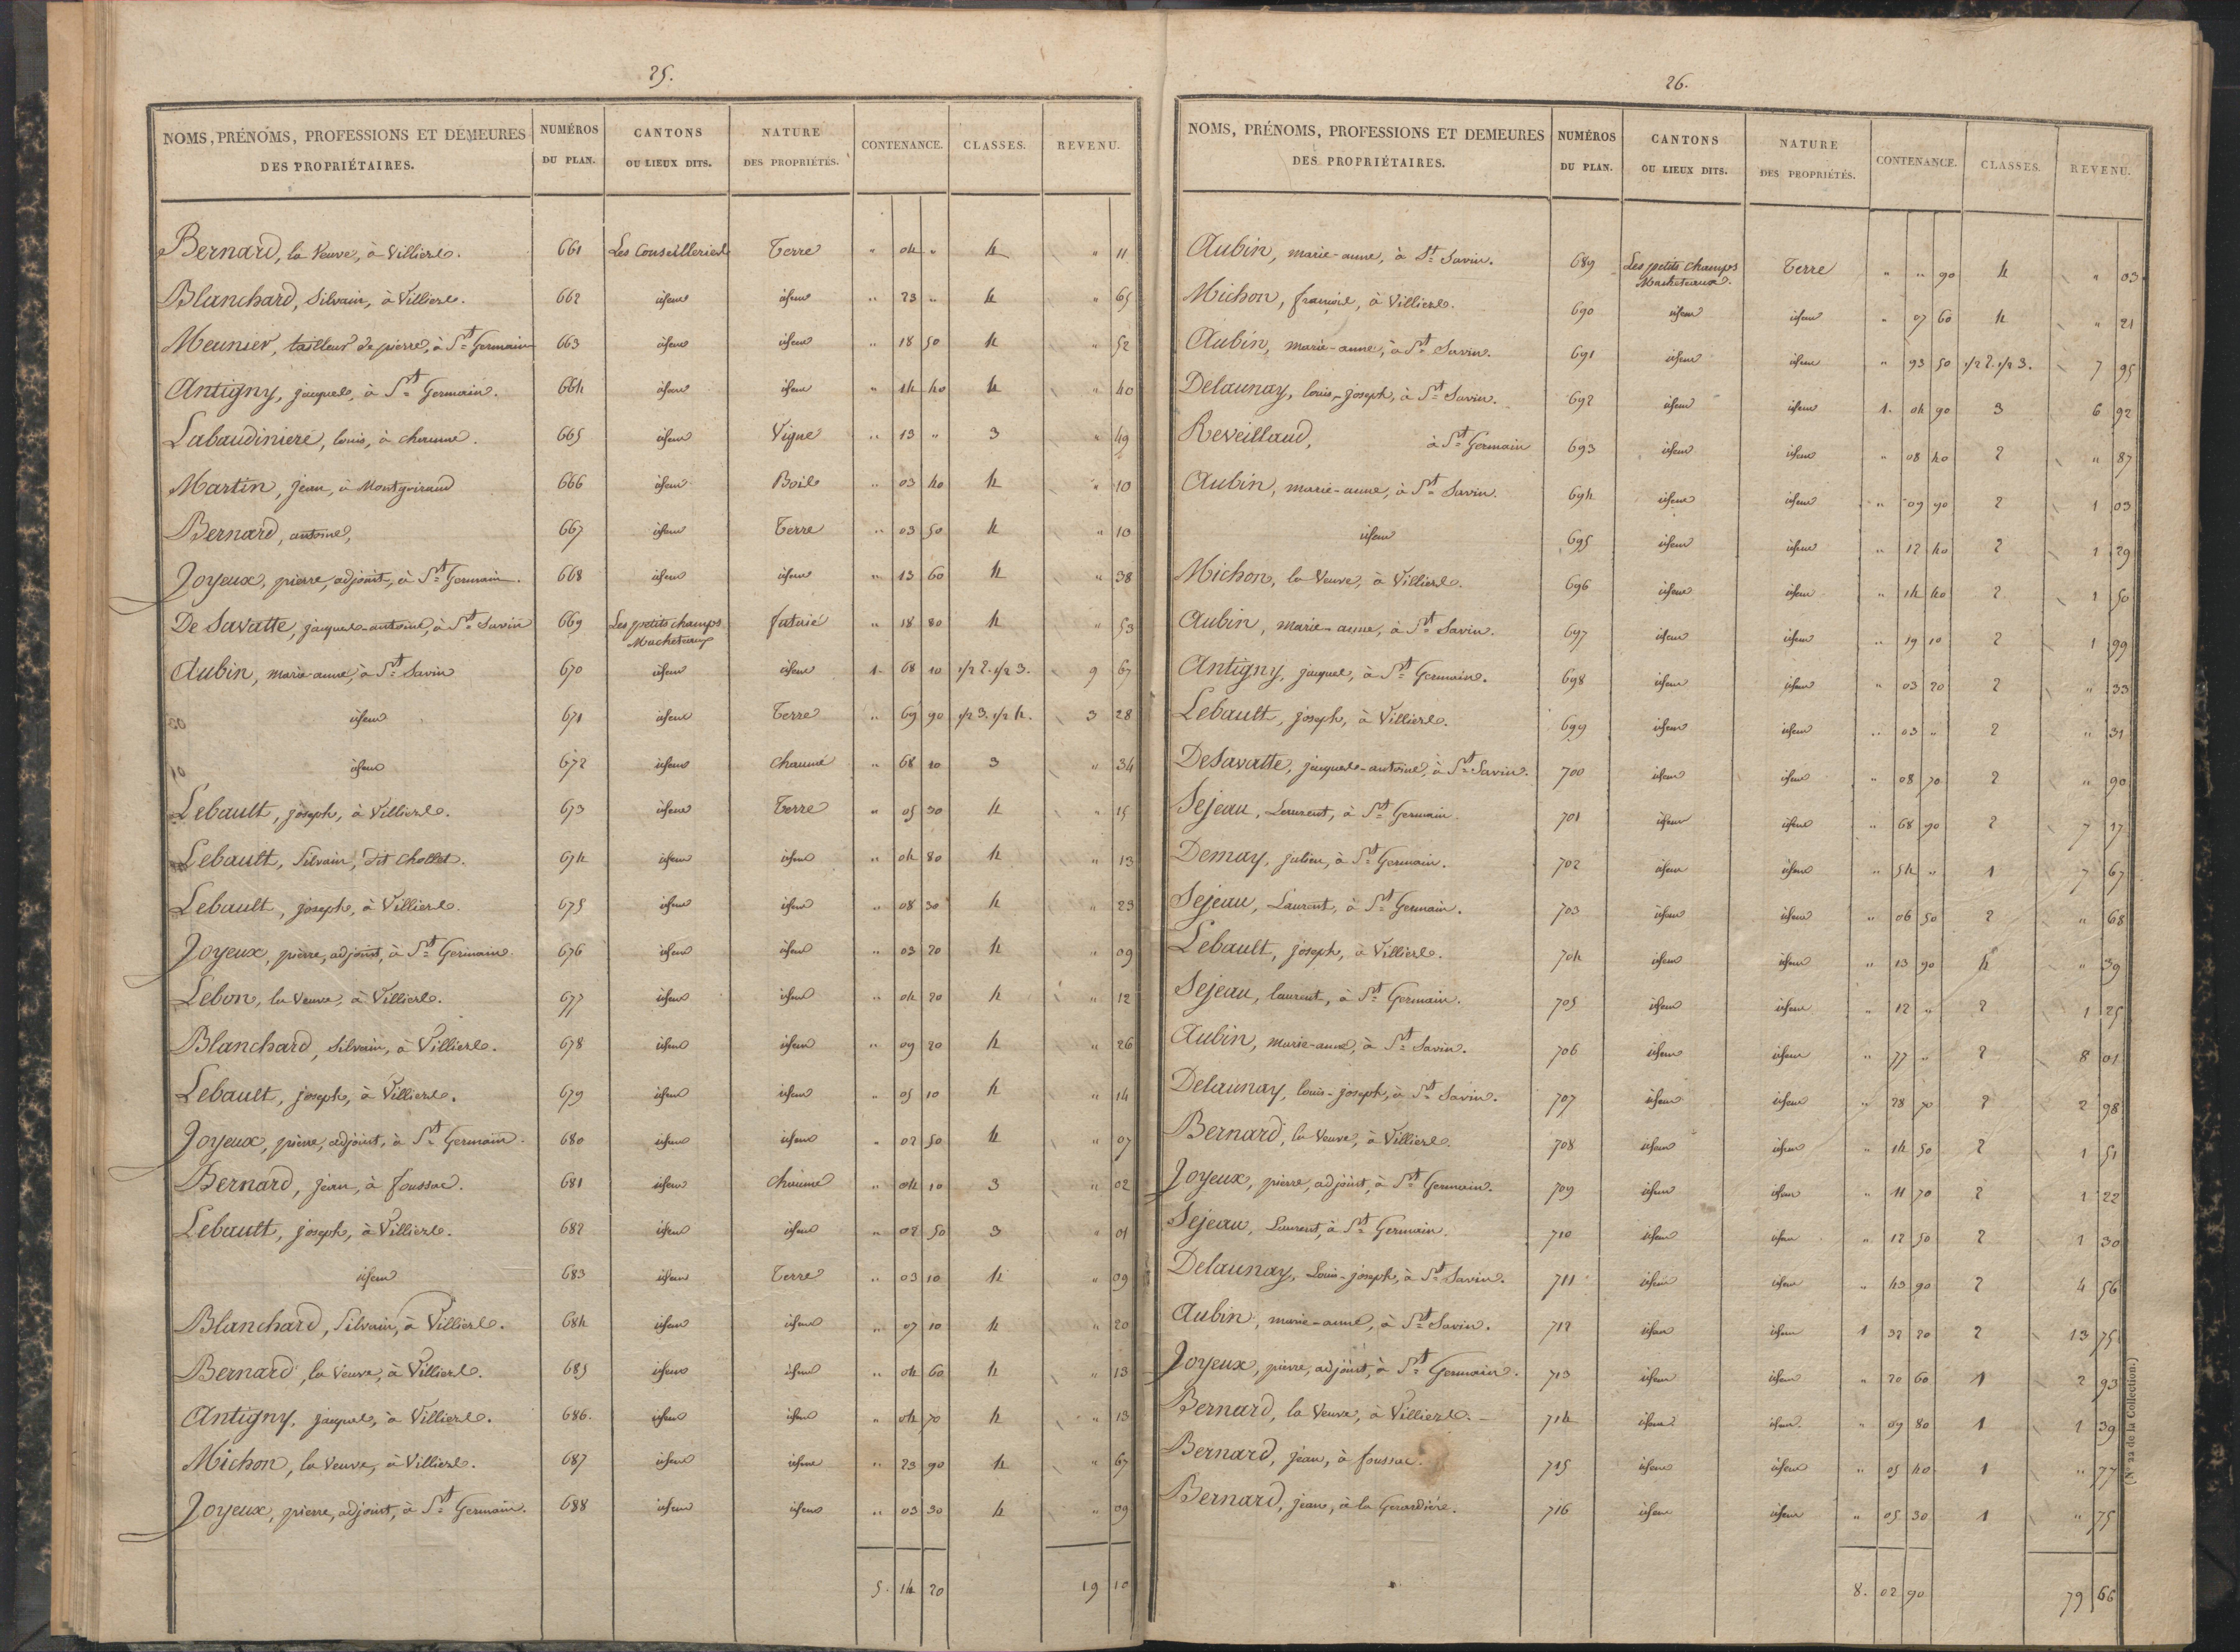 25.
NOMS, PRÉNOMS, PROFESSIONS ET DEMEURES DES PROPRIÉTAIRES. NUMÉROS DU PLAN. CANTONS OU LIEUX DITS. NATURE DES PROPRIÉTÉS. CONTENANCE. CLASSES. REVENU.
Bernard, la Veuve, à Villiers. 661 Les Conseilleries Terre " 04 " 4 " 11
Blanchard, Silvain, à Villiers. 662 idem idem " 23 " 4 " 65
Meunier, tailleur de pierre, à St Germain 663 idem idem " 18 50 4 " 52
Antigny, jacques, à St Germain. 664 idem idem " 14 40 4 " 40
Labaudiniere, louis, à chaume. 665 idem Vigne " 13 " 3 " 49
Martin, jean, à Montguiraud 666 idem Bois " 03 40 4 " 10
Bernard, antoine, 667 idem Terre " 03 50 4 " 10
Joyeux, pierre, adjoint, à St Germain. 668 idem idem " 13 60 4 " 38
De Savatte, jacques-antoine, à St Savin 669 Les petits champs Macheteaux futaie " 18 80 4 " 53
Aubin, marie-anne, à St Savin 670 idem idem 1. 68 10 1/2 2. 1/2 3. 9 67
idem 671 idem Terre " 69 90 1/2 3. 1/2 4. 3 28
idem 672 idem Chaume " 68 10 3 " 34
Lebault, joseph, à Villiers. 673 idem Terre " 05 30 4 " 15
Lebault, Silvain, dit Chollet. 674 idem idem " 04 80 4 " 13
Lebault, joseph, à Villiers. 675 idem idem " 08 30 4 " 23
Joyeux, pierre, adjoint, à St Germain. 676 idem idem " 03 20 4 " 09
Lebon, la Veuve, à Villiers. 677 idem idem " 04 20 4 " 12
Blanchard, Silvain, à Villiers. 678 idem idem " 09 20 4 " 26
Lebault, joseph, à Villiers. 679 idem idem " 05 10 4 " 14
Joyeux, pierre, adjoint, à St Germain. 680 idem idem " 02 50 4 " 07
Bernard, jean, à foussac. 681 idem chaume " 04 10 3 " 02
Lebault, joseph, à Villiers. 682 idem idem " 02 50 3 " 01
idem 683 idem Terre " 03 10 4 " 09
Blanchard, Silvain, à Villiers. 684 idem idem " 07 10 4 " 20
Bernard, la Veuve, à Villiers. 685 idem idem " 04 60 4 " 13
Antigny, jacques, à Villiers. 686. idem idem " 04 70 4 " 13
Michon, la Veuve, à Villiers. 687 idem idem " 23 90 4 " 67
Joyeux, pierre, adjoint, à St Germain. 688 idem idem " 03 30 4 " 09
5. 14 20 19 10
26.
NOMS, PRÉNOMS, PROFESSIONS ET DEMEURES DES PROPRIÉTAIRES. NUMÉROS DU PLAN. CANTONS OU LIEUX DITS. NATURE DES PROPRIÉTÉS. CONTENANCE. CLASSES. REVENU.
Aubin, marie-anne, à St Savin. 689 Les petits champs Macheteaux. Terre " " 90 4 " 03
Michon, françois, à Villiers. 690 idem idem " 07 60 4 " 21
Aubin, marie-anne, à St Savin. 691 idem idem " 93 50 1/2 2. 1/2 3. 7 95
Delaunay, louis-joseph, à St Savin. 692 idem idem 1. 04 90 3 6 92
Reveillaud, à St Germain 693 idem idem " 08 40 2 " 87
Aubin, marie-anne, à St Savin. 694 idem idem " 09 90 2 1 03
idem 695 idem idem " 12 40 2 1 29
Michon, la Veuve, à Villiers. 696 idem idem " 14 40 2 1 50
Aubin, marie-anne, à St Savin. 697 idem idem " 19 10 2 1 99
Antigny, jacques, à St Germain. 698 idem idem " 03 20 2 " 33
Lebault, joseph, à Villiers. 699 idem idem " 03 " 2 " 31
DeSavatte, jacques-antoine, à St Savin. 700 idem idem " 08 70 2 " 90
Sejeau, Laurent, à St Germain. 701 idem idem " 68 90 2 7 17
Demay, julien, à St Germain. 702 idem idem " 54 " 1 7 67
Sejeau, Laurent, à St Germain. 703 idem idem " 06 50 2 " 68
Lebault, joseph, à Villiers. 704 idem idem " 13 90 4 " 39
Sejeau, laurent, à St Germain. 705 idem idem " 12 " 2 1 25
Aubin, marie-anne, à St Savin. 706 idem idem " 77 " 2 8 01
Delaunay, louis-joseph, à St Savin. 707 idem idem " 28 70 2 2 98
Bernard, la Veuve, à Villiers. 708 idem idem " 14 50 2 1 51
Joyeux, pierre, adjoint, à St Germain. 709 idem idem " 11 70 2 1 22
Sejeau, Laurent, à St Germain. 710 idem idem " 12 50 2 1 30
Delaunay, Louis-joseph, à St Savin. 711 idem idem " 43 90 2 4 56
Aubin, marie-anne, à St Savin. 712 idem idem 1 32 20 2 13 75
Joyeux, pierre, adjoint, à St Germain. 713 idem idem " 20 60 1 2 93
Bernard, la Veuve, à Villiers. 714 idem idem. " 09 80 1 1 39
Bernard, jean, à foussac. 715 idem idem " 05 40 1 " 77
Bernard, jean, à la Gerardière. 716 idem idem " 05 30 1 " 75
8. 02 90 79 66
(N° 22 de la Collection.)